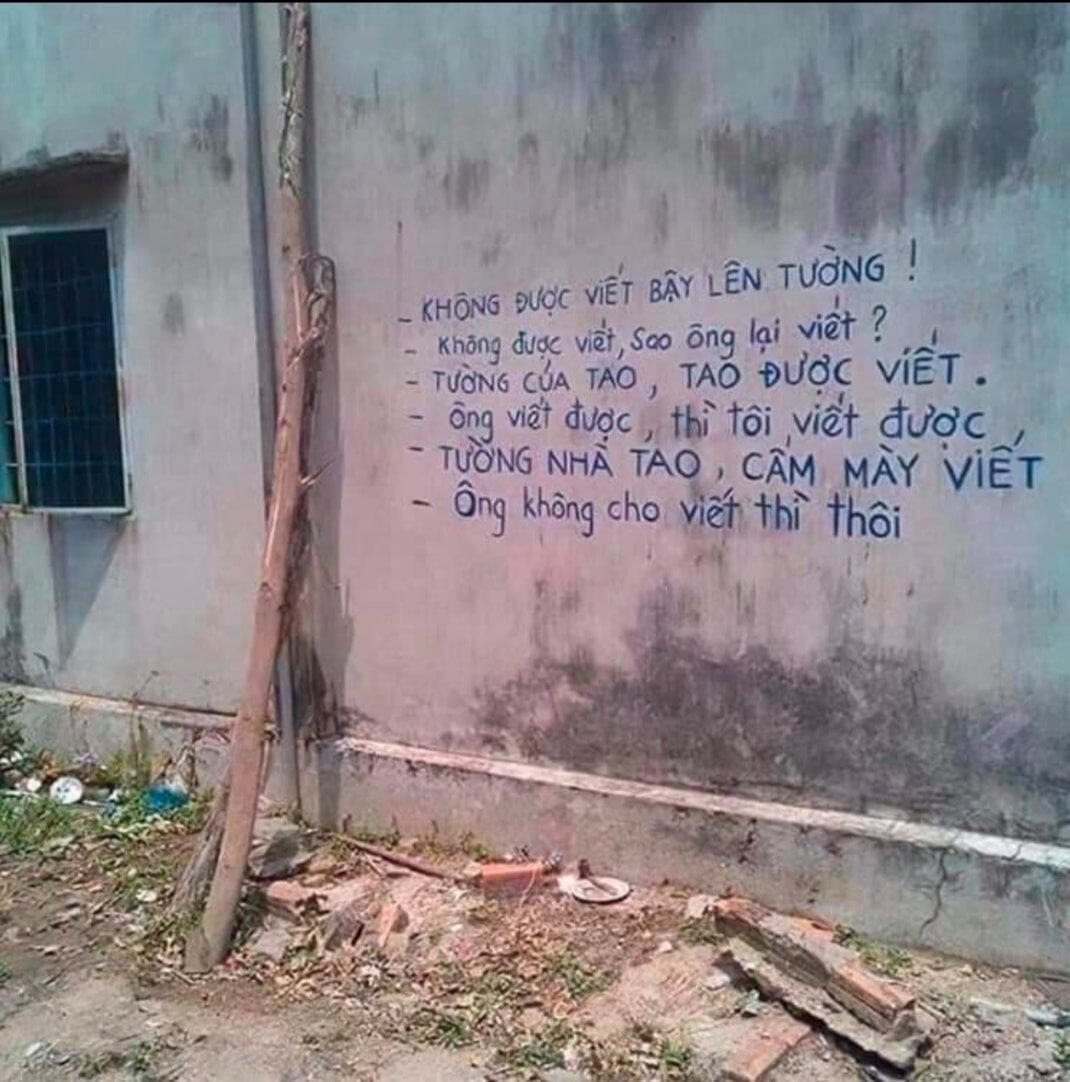 - KHÔNG ĐƯỢC VIẾT BẬY LÊN TƯỜNG !
- Không được viết, Sao ông lại viết ?
- TƯỜNG CỦA TAO, TAO ĐƯỢC VIẾT.
- Ông viết được, thì tôi viết được,
- TƯỜNG NHÀ TAO, CẤM MÀY VIẾT
- Ông không cho viết thì thôi